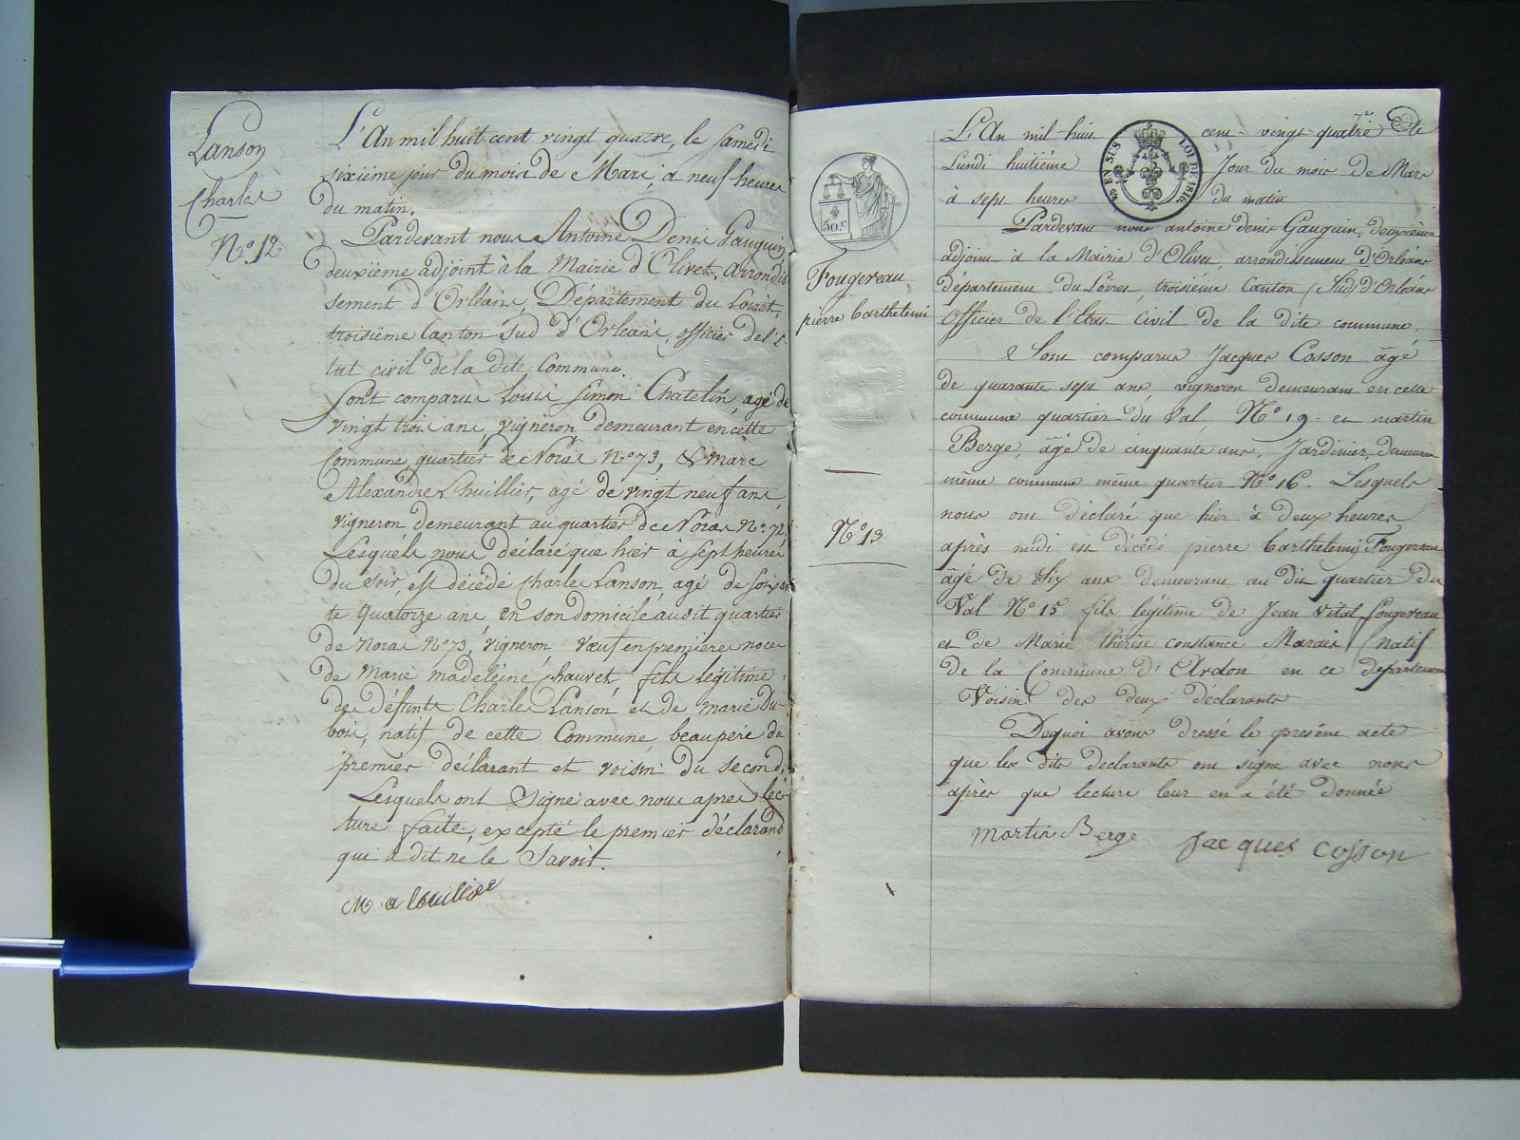 Lanson
Charles
N.º 12.
L'An mil huit cent vingt quatre, le samedi
sixiéme jour du mois de Mars, à neuf heures
du matin.
Pardevant nous Antoine Denis Gauguin,
deuxiéme adjoint à la Mairie d'Olivet, Arrondis
sement d'Orléans, Département du Loiret,
troisiéme Canton Sud d'Orléans, officier de l'é-
tat civil de la dite Commune.
Sont comparus Louis Simon Chatelin, agé de
vingt trois ans, vigneron demeurant en cette
Commune, quartier de Noras N.º 73, & Marc
Alexandre Lhuillier, agé de vingt neuf ans,
vigneron demeurant au quartier de Noras N.º 72,
Lesquéls nous déclaré que hier à sept heures
du soir, est décédé Charles Lanson, agé de soixan
te quatorze ans en son domicile audit quartier
de Noras N.º 73, vigneron, veuf en premiéres noces
de Marie madeleine Chauvet, fils légitime
de défunts Charles Lanson et de Marie Du-
bois, natif de cette Commune, beaupére du
premier déclarant et voisin du second.
Lesquels ont signé avec nous aprés lec-
ture faite, excepté le premier déclarand
qui a dit ne le savoir.
M a Louillier
50.c
EN SUS
LOI DE 1816
Fougereau
pierre barthelemi
N.º 13
L'An mil-huit cent-vingt-quatre Le
Lundi huitiéme Jour du mois de Mars
à sept heures du matin
Pardevant nous antoine denis Gauguin, deuxiéme
adjoint à la Mairie d'Olivet, arrondissement d'Orléans
département du Loiret, troisiéme Canton (Sud) d'Orléans
Officier de l'Etat Civil de la dite commune.
Sont comparus Jacques Cosson âgé
de quarante sept ans, vigneron demeurant en cette
commune quartier du Val, N.º 19 - et martin
Berge, âgé de cinquante ans, Jardinier, demeurant
même commune même quartier N.º 16. Lesquels
nous ont déclaré que hier à deux heures
après midi est décédé pierre barthelemi Fougereau
âgé de dix ans demeurant au dit quartier du
Val N.º 15 fils légitime de Jean Vital fougereau
et de Marie thérèse constance Marais (natif
de la Commune d'Ardon en ce département
Voisin des deux déclarants
Dequoi avons dressé le présent acte
que les dits déclarants ont signé avec nous
après que lecture leur en a été donnée
Martin Berge Jacques Cosson